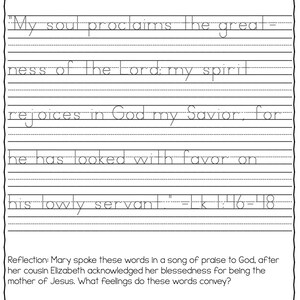 "My soul proclaims the great-
ness of the Lord; my spirit
rejoices in God my Savior, for
he has looked with favor on
his lowly servant." -Lk 1:46-48
Reflection: Mary spoke these words in a song of praise to God, after
her cousin Elizabeth acknowledged her blessedness for being the
mother of Jesus. What feelings do these words convey?